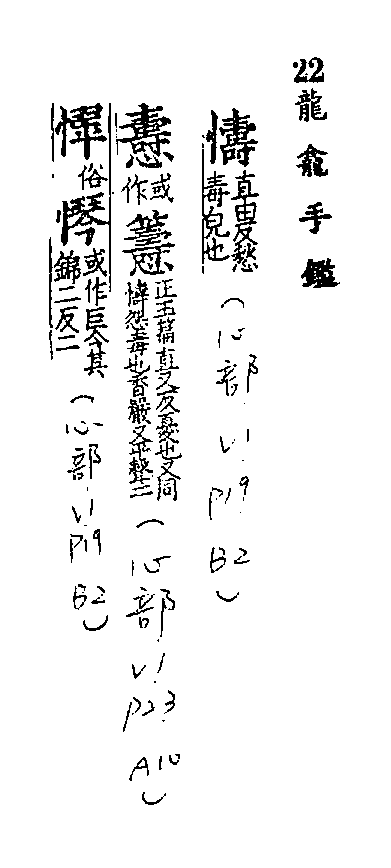 22龍龕手鑑
懤直由反愁毒皃也(心部 V1 P19 B2)
或作 正玉篇直又反憂也又同懤怨毒也香嚴又平聲二(心部 V1 P23 A10)
俗 或作巨今其錦二反二(心部 V1 P19 B2)